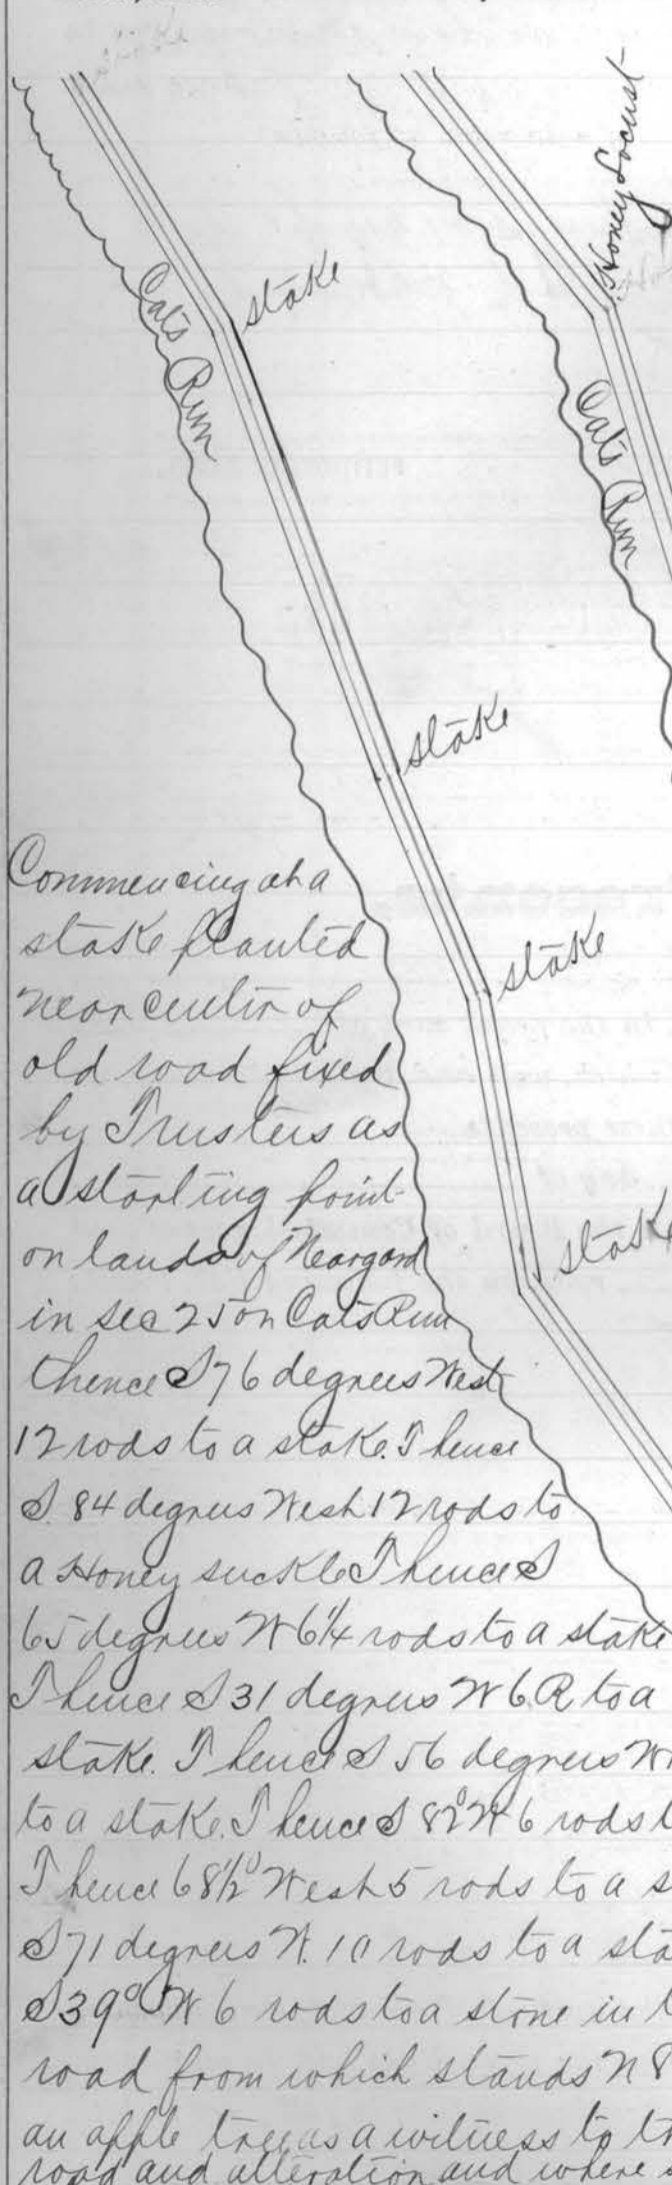 Honey Locust
stake
Cats Run
Cats Run
stake
stake
stake
Commencing at a
stake planted
near center of
old road fixed
by Trustees as
a starting point
on lands of
in sec 25 on Cats Run
thence S 76 degrees West
12 rods to a stake. Thence
S. 84 degrees West 12 rods to
a Honey suckle Thence S
65 degrees W 6 1/4 rods to a stake
Thence S 31 degrees W 6 R to a
stake. Thence S 56 degrees W
to a stake. Thence S 82° W 6 rods t
Thence 68 1/2° West 5 rods to a s
S 71 degrees W. 10 rods to a sta
S 39° W 6 rods to a stone in t
road from which stands N 8
an apple tree as a witness to
road and alteration and where